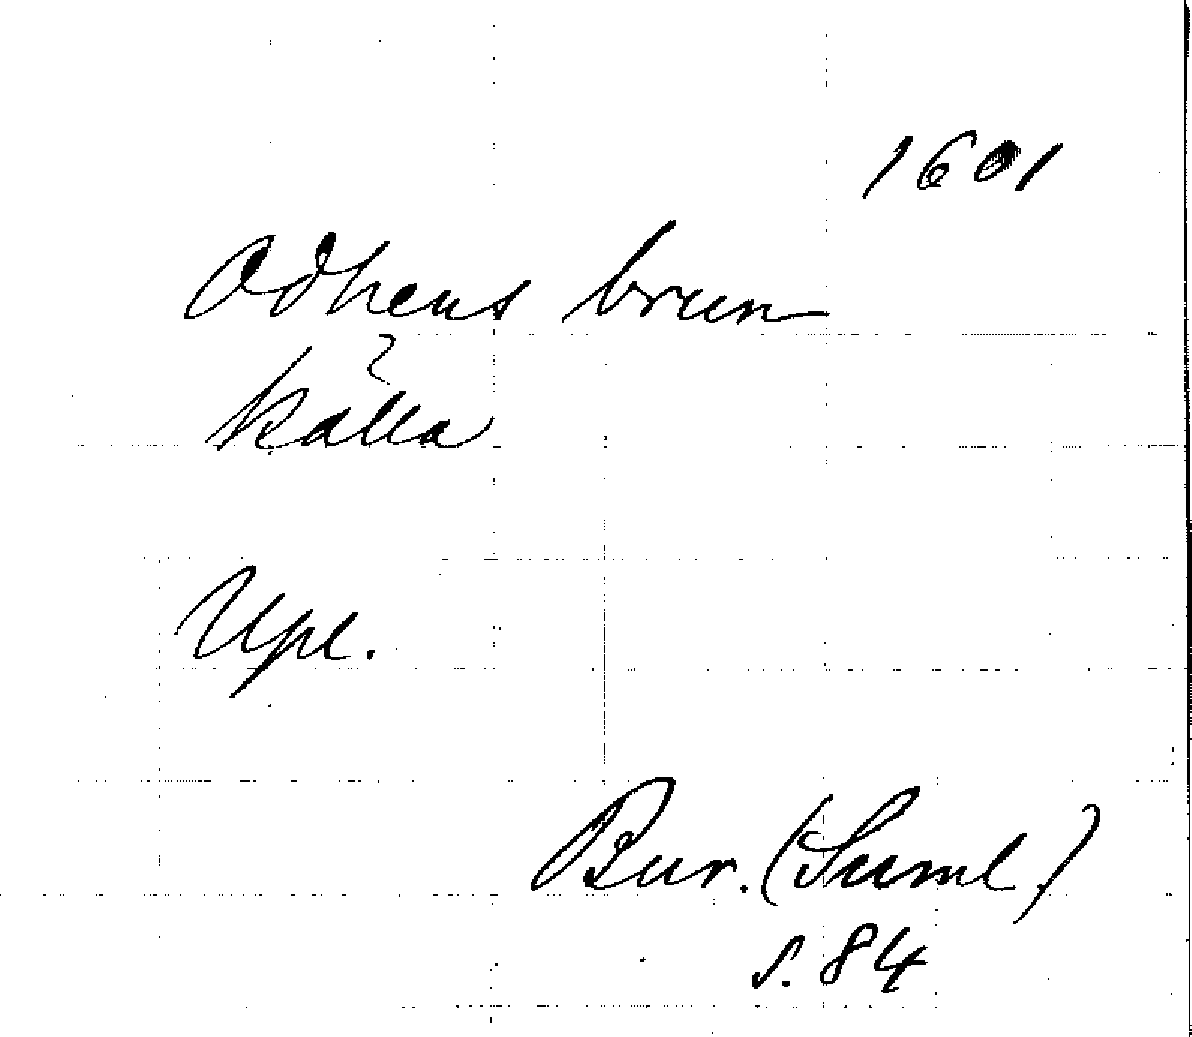 1601
Odhens brun
?
källa
Upl.
Bur. (Suml.)
s. 84